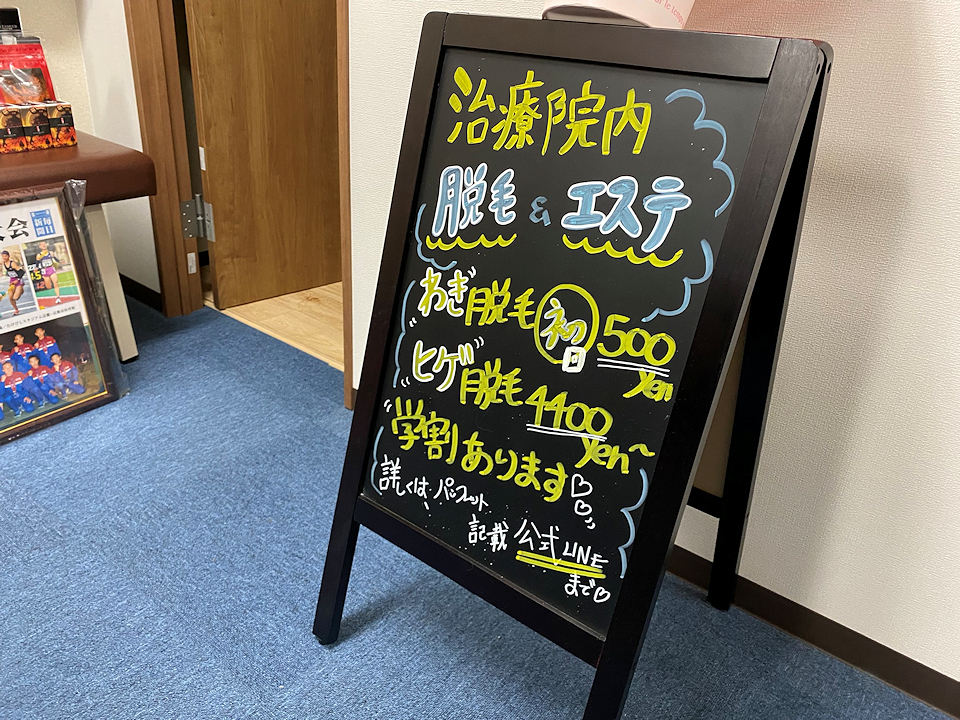 治療院内
脱毛 & エステ
わき"脱毛 初回 500
yen
"ヒゲ"脱毛 4400
yen~
"学割あります♡
詳しくは、パンフレット
記載 公式LINE
まで♡
大会
毎日新聞